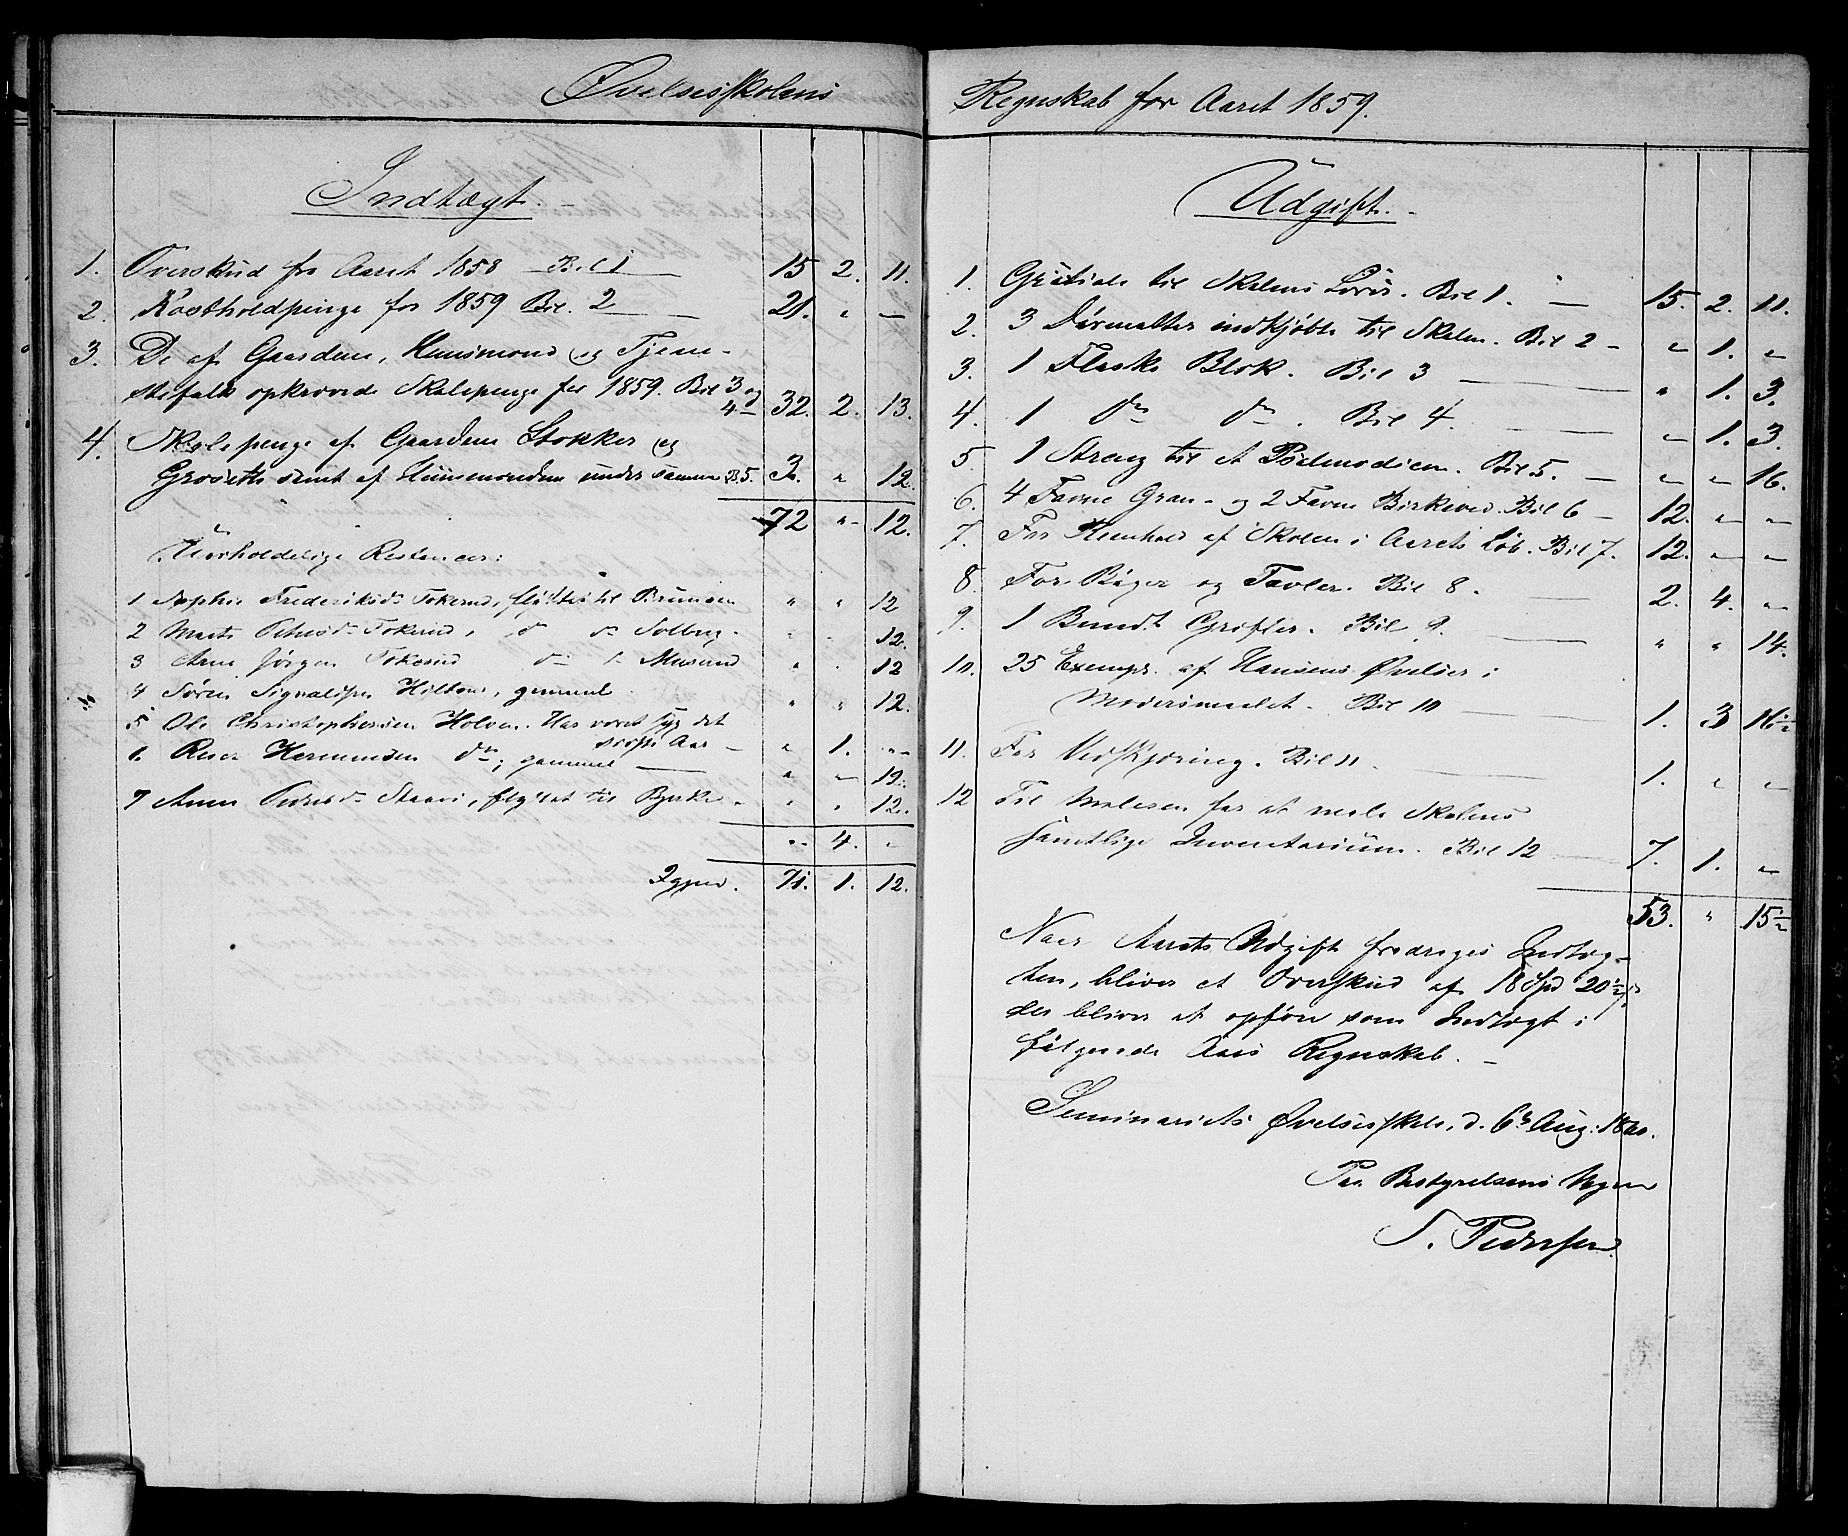 Øvelsesskolens
Indtægt.
1. Overskud fra Aaret 1858 Bil 1 15 2. 11.
2. Kostholdpenge for 1859 Bil. 2 21. " —
3. De af Gaardene, Huusmænd og Tjene-
stefolk opkrævede Skolepenge for 1859. Bil 3 og
4 32. 2. 13.
4. Skolepenge af Gaardene Stokker og
samt af Huusmændene under samme B 5. 3. " 12.
72 " 12.
Uerholdelige Restancer:
1 Sophie Frederiksdr Tokerud, flyttet til " " 12
2 Marte Tokerud, dr dr Solberg. " " 12.
3 Arne Jørgen Tokerud dr dr " " 12
4 Søren Hilton, gammel. " " 12.
5 Ole Christophersen Holven. Har været syg det
sidste Aar " 1. "
6. Hermansen dr, gammel " — 12.
7 Anne Pedersdr flyttet til Bjerke " " 12.
" 4. "
Igjen. 71. 1. 12.
Regnskab for Aaret 1859.
Udgift.
1. Gratiale til Skolens Lærer. Bil 1. 15. 2. 11.
2. 3 Dørmatter indkjøbte til Skolen. Bil 2 " 1. "
3. 1 Flaske Blæk. Bil 3 " 1. 3.
4. 1 do do. Bil 4. " 1. 3.
5. 1 Streng til et Psalmodicon. Bil 5. " " 16.
6. 4 Favne Gran- og 2 Favne Birkeved. Bil 6 12. " "
7. For Reenhold af Skolen i Aarets Løb. Bil 7. 12. " "
8. For Bøger og Tavler. Bil 8. 2. 4. "
9. 1 Bundt Grifler. Bil 9. " " 14.
10. 25 Exempr. af Hansens Øvelser i
Modersmaalet. Bil 10 1. 3 16½
11. For Vedkjøring. Bil 11. 1. " "
12 Til Maleren for at male Skolens
samtlige Inventarium. Bil 12 7. 1. "
53. " 15½
Naar Aarets Udgift fradrages Indtæg-
ten, bliver et Overskud af 18 Spd 20½ s,
der bliver at opføre som Indtægt i
følgende Aars Regnskab.
Seminariets Øvelsesskole, d. 6te Aug: 1860.
Paa Bestyrelsens Vegne
S. Pedersen